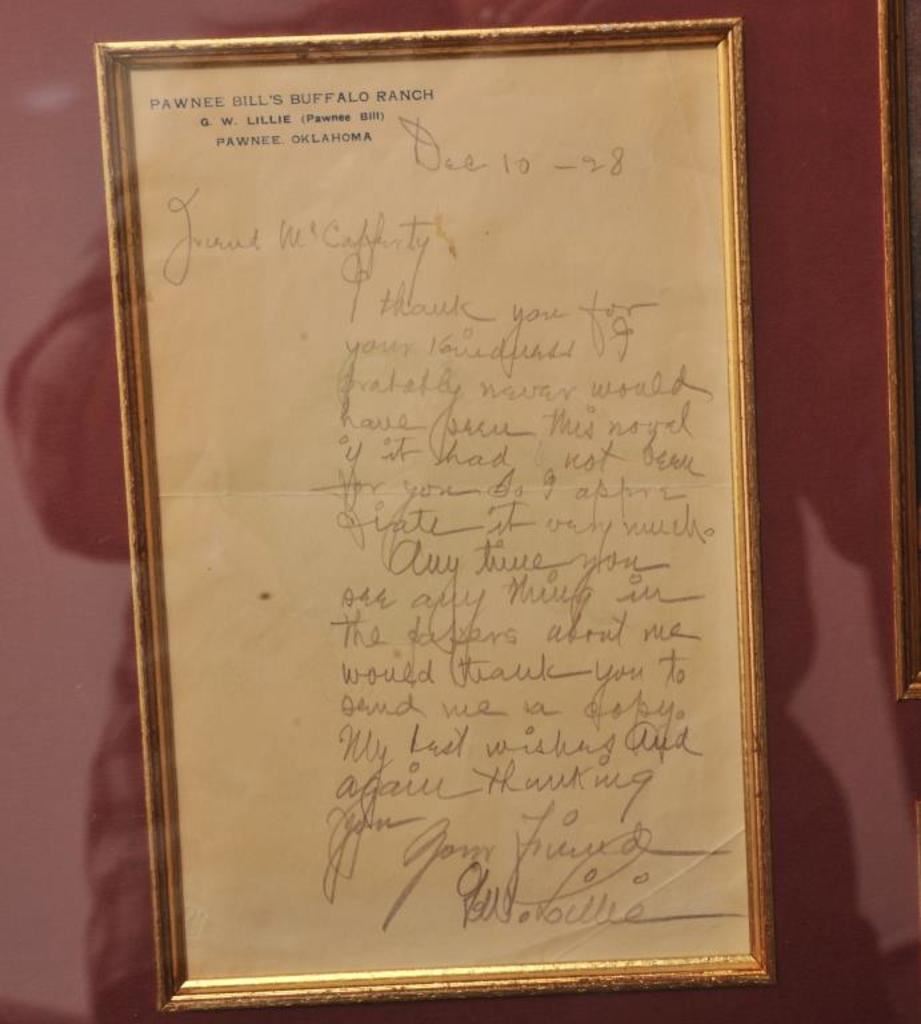 PAWNEE BILL'S BUFFALO RANCH
G. W. LILLIE (Pawnee Bill)
PAWNEE, OKLAHOMA
Dec 10 - 28
Friend McCafferty
I thank you for
your Kindness I
probably never would
have seen this novel
if it had not been
for you So I appre
ciate it very much.
Any time you
see any thing in
the papers about me
would thank you to
send me a copy.
My best wishes And
again thanking
you
Your Friend
G.W. Lillie